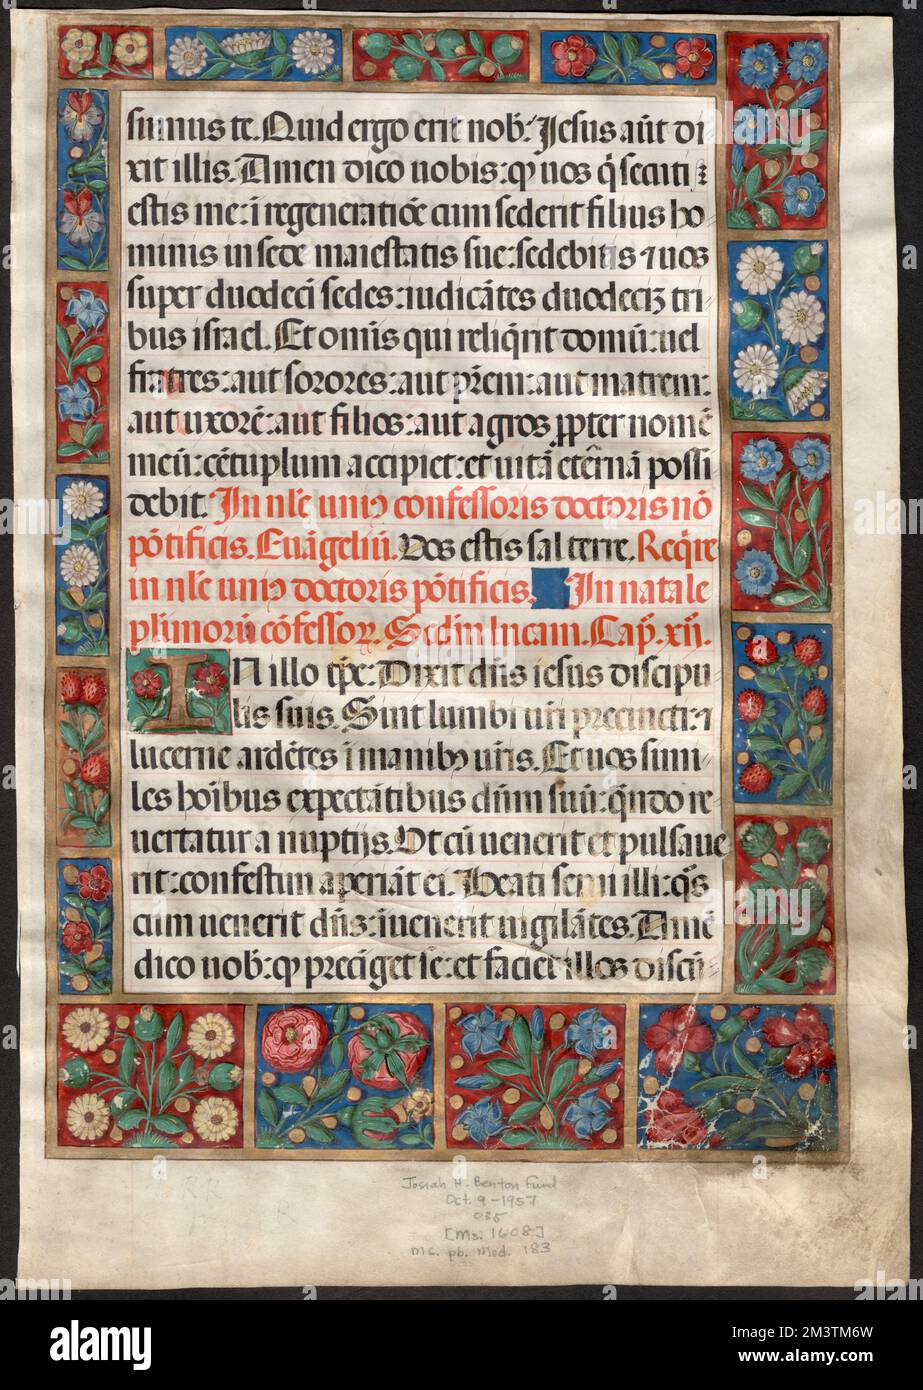 sumus te. Quid ergo erit nob̄. Jesus aūt di
xit illis. Amen dico uobis: ꝙ uos q̄ secuti
estis me: ī regeneratiōe cum sederit filius ho
minis in sede maiestatis sue: sedebitis ⁊ uos
super duodeci sedes: iudicātes duodeciʒ tri
bus israel. Et omīs qui reliq̄rit domū: uel
fratres: aut sorores: aut pr̄em: aut matrem:
aut uxorē: aut filhos: aut agros ꝓpter nomē
meū: cētuplum accipiet: et uitā etērnā possi
debit. In nl̄e uniꝰ confessoris doctoris nō
pōtificis. Euāgeliū. Vos estis sal terre. Req̄re
in nl̄e uniꝰ doctoris pōtificis. In natale
pl̄imorū cōfessoꝝ. Sed̄m lucam. Cap̄. xij.
IN illo tp̄e: Dixit dn̄s iesus discipu
lis suis. Sint lumbi ur̄i precincti: ⁊
lucerne ardētes ī manibꝰ ur̄is. Et uos simi
les hoībus expectātibus dn̄m suū: qn̄do re
uertatur a nuptijs. Vt cū uenerit et pulsaue
rit: confestim aperiāt ei. Beati serui illi: q̄s
cum uenerit dn̄s: īuenerit uigilātes. Amē
dico uob̄: ꝙ precīget se: et faciet illos discū
Josiah H. Benton Fund
Oct. 9-1957
035
[Ms. 1608]
ms. pb. Med. 183
alamy
Image ID: 2M3TM6W
www.alamy.com